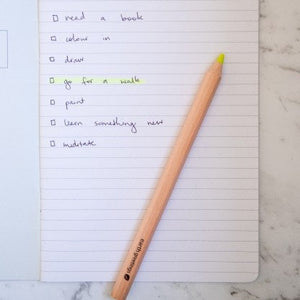 read a book
colour in
draw
go for a walk
paint
learn something new
meditate
earth greetings